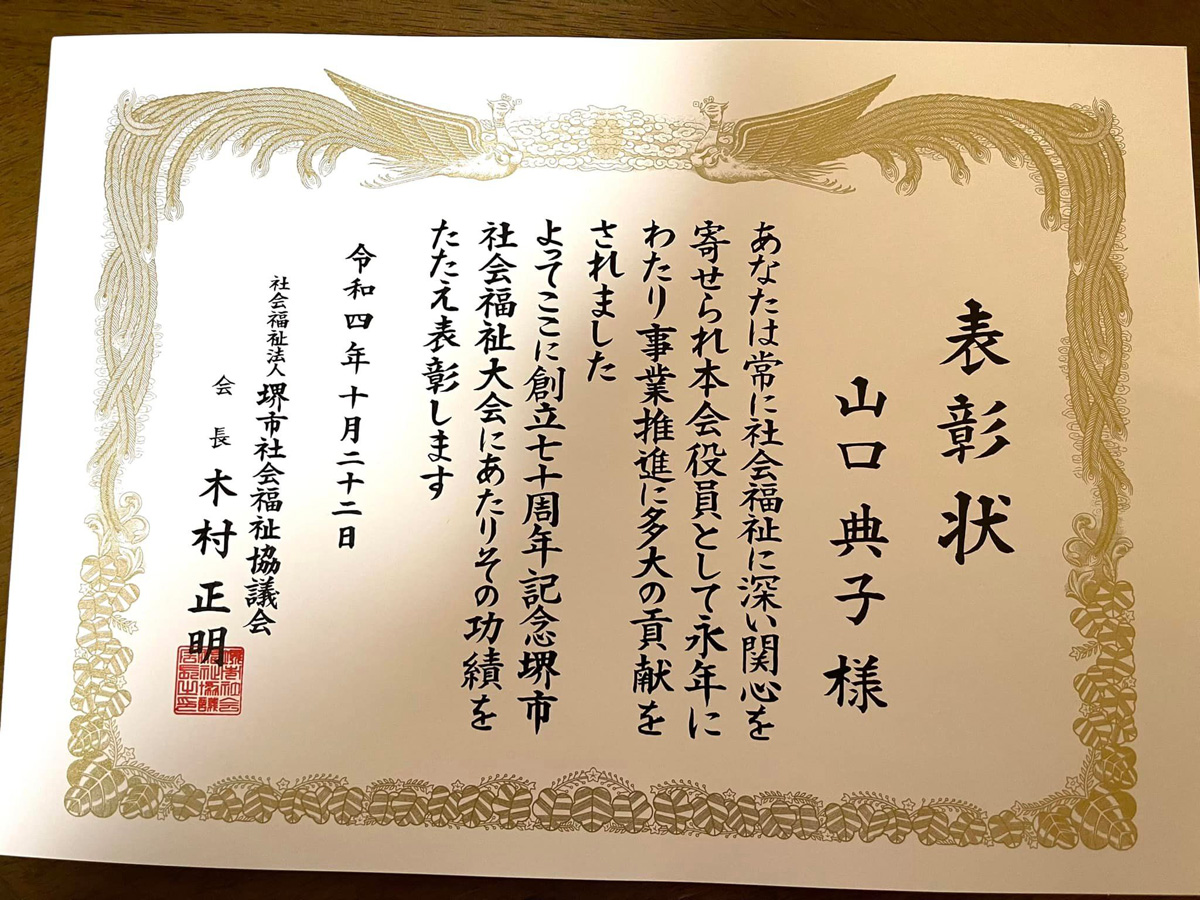 表彰状
山口典子様
あなたは常に社会福祉に深い関心を
寄せられ本会役員として永年に
わたり事業推進に多大の貢献を
されました
よってここに創立七十周年記念堺市
社会福祉大会にあたりその功績を
たたえ表彰します
令和四年十月二十二日
社会福祉法人堺市社会福祉協議会
会長木村正明